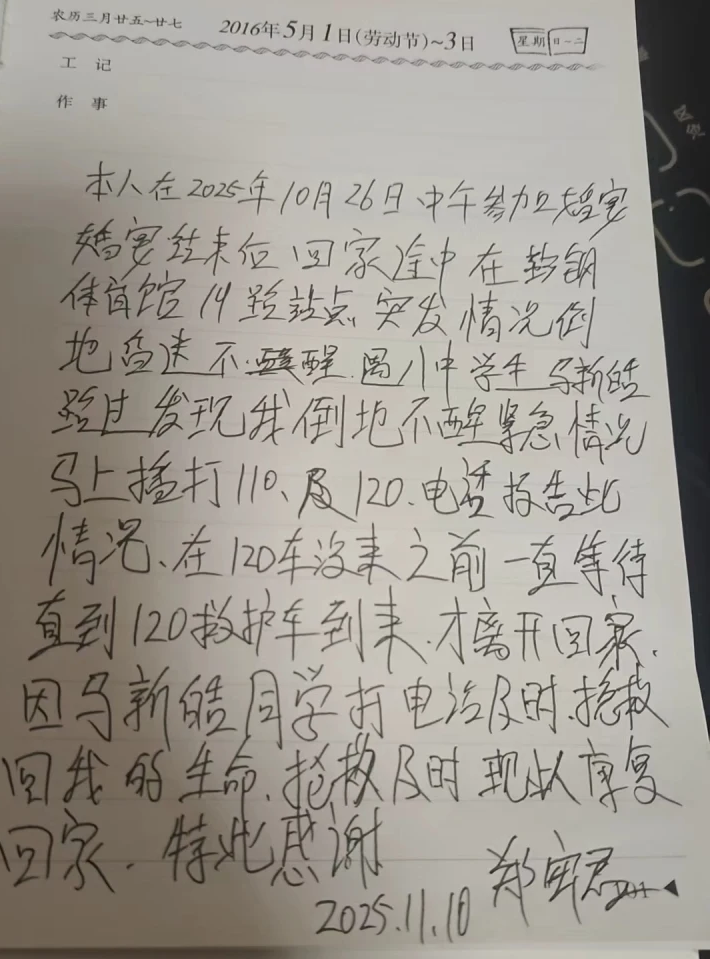 农历三月廿五~廿七
2016年5月1日(劳动节)~3日
星期 日~二
工 记
作 事
本人在2025年10月26日中午参加婚宴
婚宴结束后回家途中在鞍钢
体育馆14路站点突发情况倒
地昏迷不醒.八中学生马新皓
路过发现我倒地不醒紧急情况
马上播打110、及120.电话报告此
情况、在120车没来之前一直等待
直到120救护车到来.才离开回家.
因马新皓同学打电话及时.抢救
回我的生命.抢救及时现以康复
回家.特此感谢
郑
2025.11.10